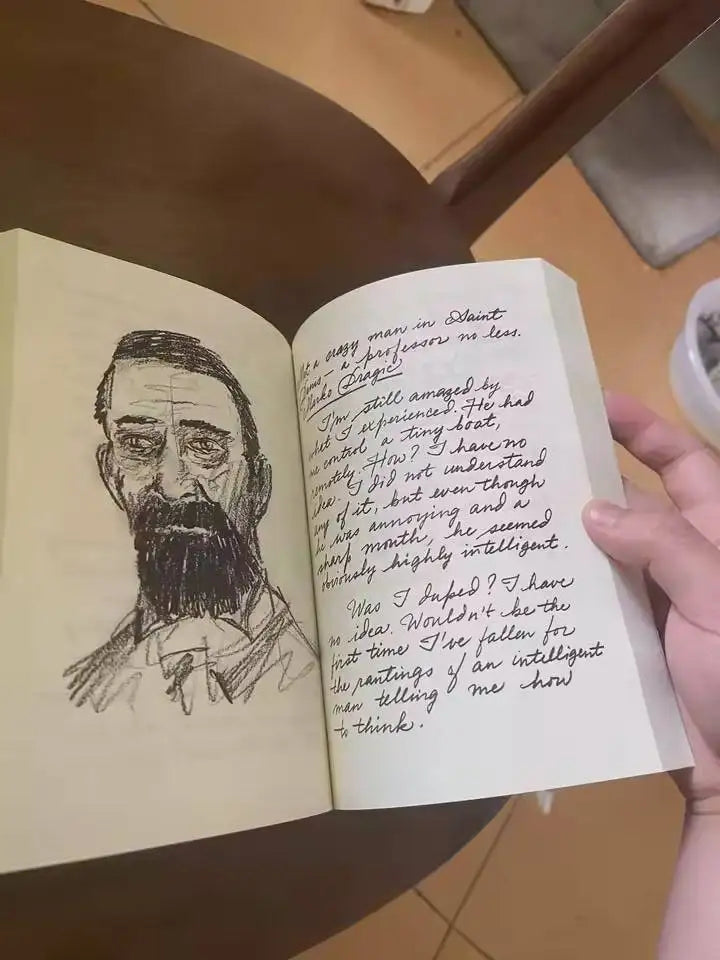 a crazy man in Saint
Denis – a professor no less.
Marko Dragic
I'm still amazed by
what I experienced. He had
me control a tiny boat,
remotely. How? I have no
idea. I did not understand
any of it, but even though
he was annoying and a
sharp mouth, he seemed
obviously highly intelligent.
Was I duped? I have
no idea. Wouldn't be the
first time I've fallen for
the rantings of an intelligent
man telling me how
to think.